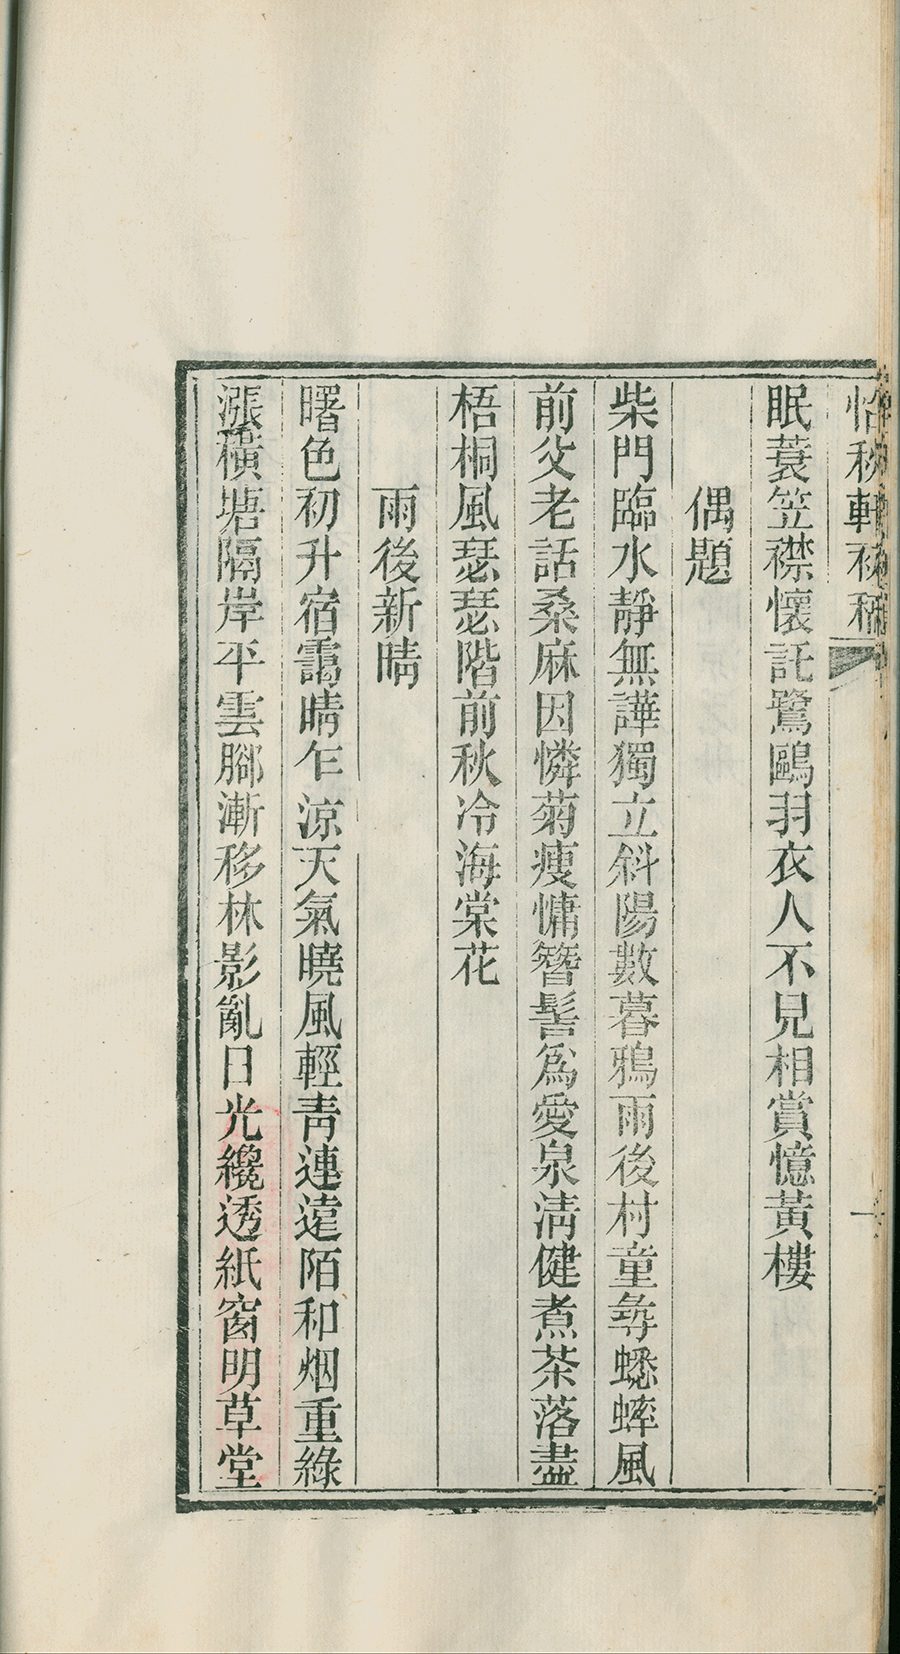 怡秋軒秋稿
一
眠蓑笠襟懷託鷺鷗羽衣人不見相賞憶黃樓
偶題
柴門臨水靜無譁獨立斜陽數暮鴉雨後村童尋蟋蟀風
前父老話桑麻因憐菊瘦慵簪髻爲愛泉淸健煮茶落盡
梧桐風瑟瑟階前秋冷海棠花
雨後新晴
曙色初升宿靄晴乍涼天氣曉風輕靑連遠陌和烟重綠
漲橫塘隔岸平雲腳漸移林影亂日光纔透紙窗明草堂